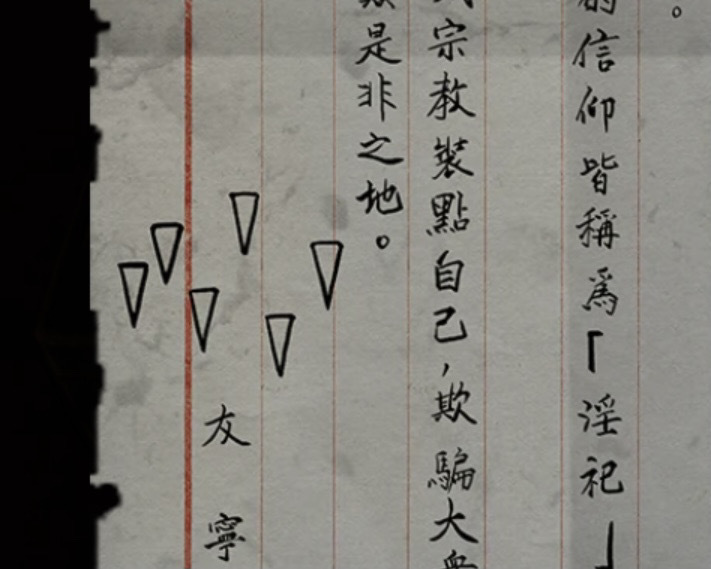 。
信仰皆稱爲「淫祀」
宗教裝點自己，欺騙大
是非之地。
友寧